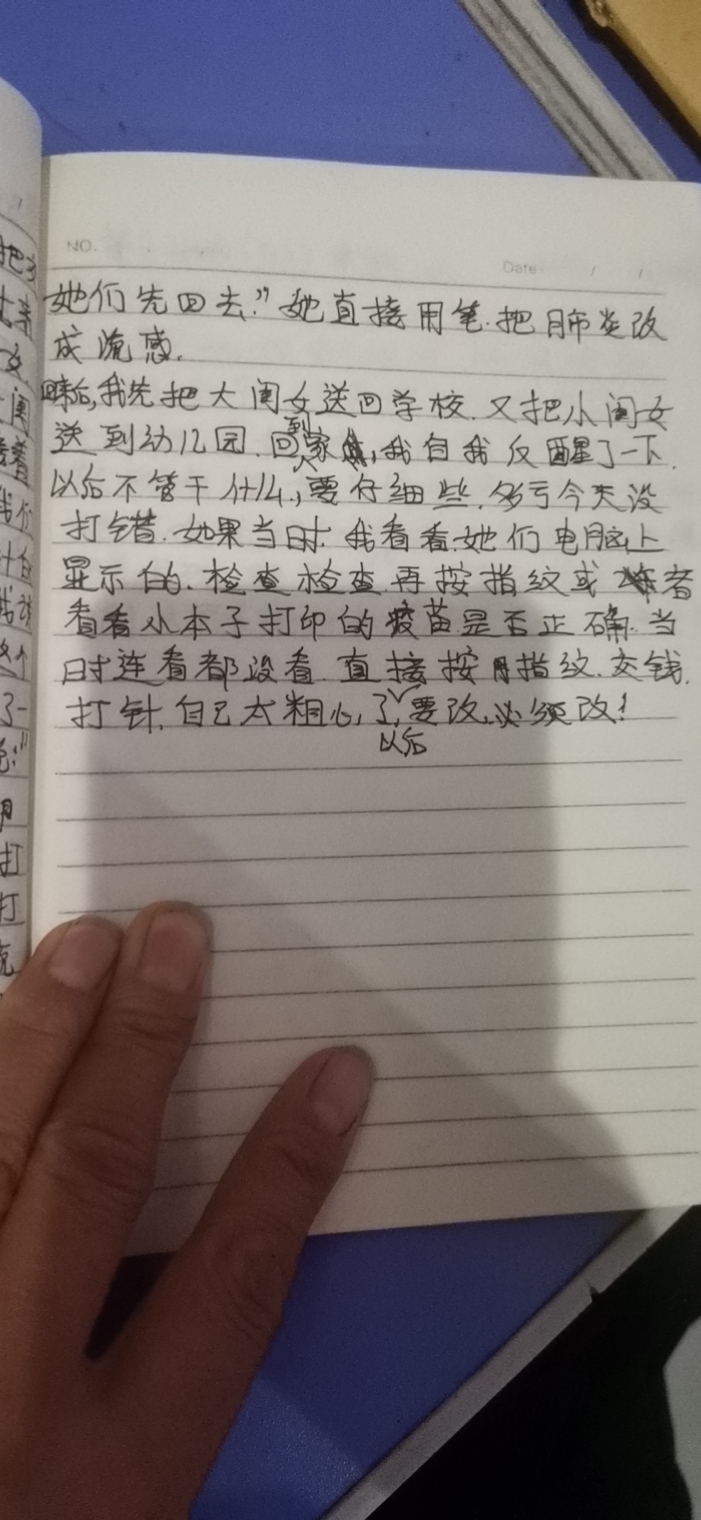 NO.
Date / /
她们先回去。”她直接用笔.把肺炎改
成流感.
回来后,我先把大闺女送回学校.又把小闺女
送到幼儿园.回到家,我自我反醒了一下.
以后不管干什么,要仔细些.多亏今天没
打错.如果当时.我看看她们电脑上
显示的.检查检查.再按指纹或者
看看小本子打印的疫苗是否正确.当
时连看都没看.直接按指纹.交钱.
打针.自己太粗心了,以后要改,必须改!